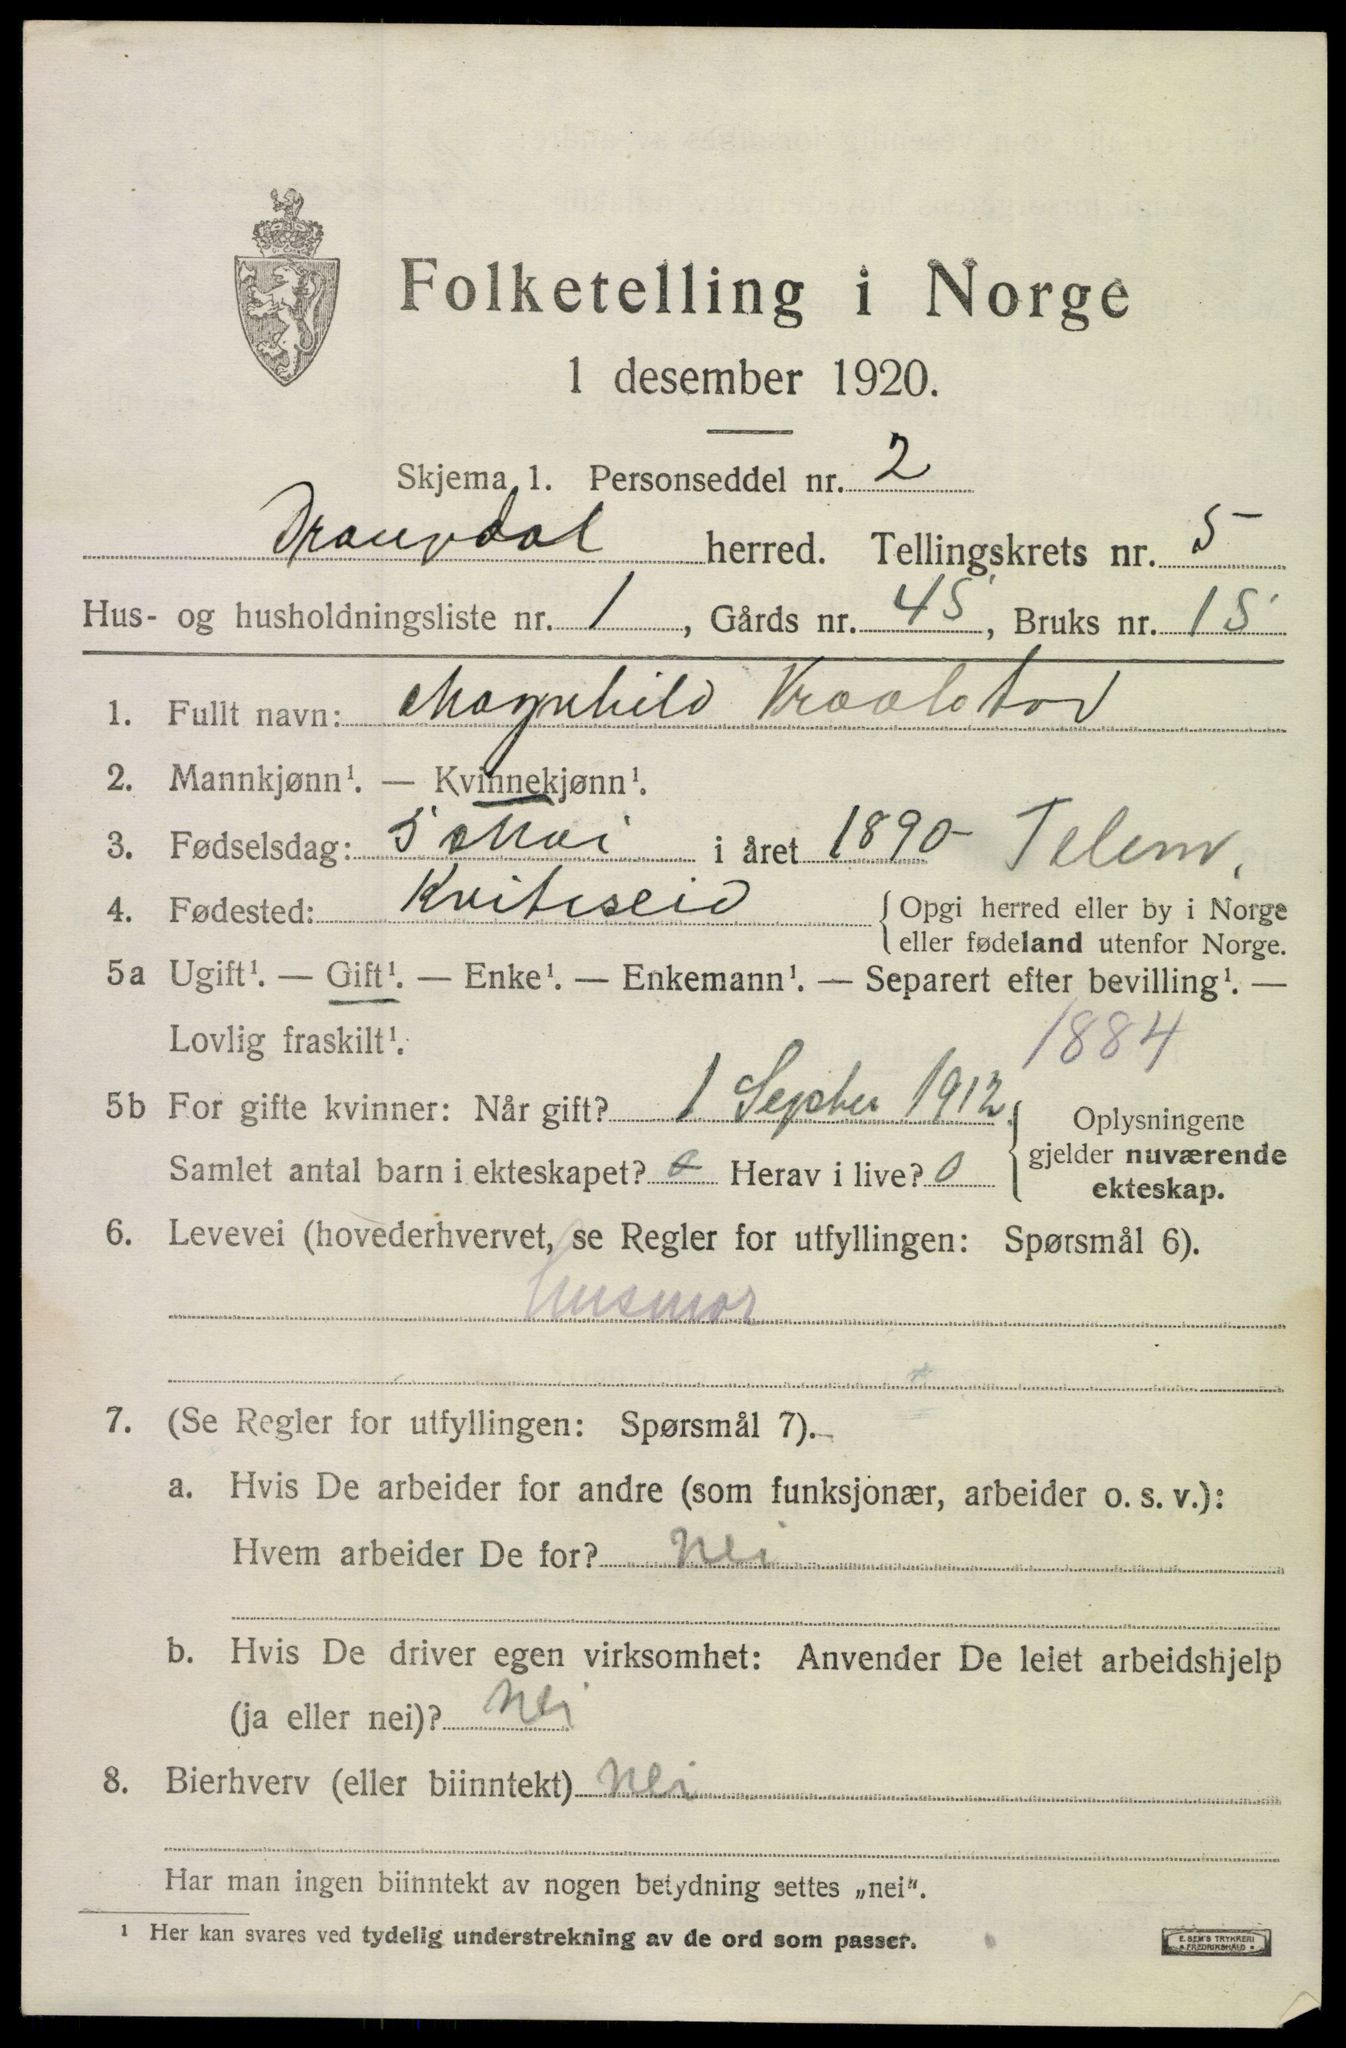 Folketelling i Norge
1 desember 1920.
Skjema 1. Personseddel nr. 2
herred. Tellingskrets nr. 5
Hus- og husholdningsliste nr. 1, Gårds nr. 45, Bruks nr. 15
1. Fullt navn: Magnhild
2. Mannkjønn¹. — Kvinnekjønn¹.
3. Fødselsdag: 5 Mai i året 1890 Telem.
4. Fødested: Kviteseid { Opgi herred eller by i Norge
eller fødeland utenfor Norge.
5a Ugift¹. — Gift¹. — Enke¹. — Enkemann¹. — Separert efter bevilling¹. —
Lovlig fraskilt¹.
1884
5b For gifte kvinner: Når gift? 1 Septber 1912. { Oplysningene
Samlet antal barn i ekteskapet? 0 Herav i live? 0 gjelder nuværende
ekteskap.
6. Levevei (hovederhvervet, se Regler for utfyllingen: Spørsmål 6).
Husmor
7. (Se Regler for utfyllingen: Spørsmål 7).
a. Hvis De arbeider for andre (som funksjonær, arbeider o. s. v.):
Hvem arbeider De for? Nei
b. Hvis De driver egen virksomhet: Anvender De leiet arbeidshjelp
(ja eller nei)? Nei
8. Bierhverv (eller biinntekt) Nei
Har man ingen biinntekt av nogen betydning settes „nei".
¹ Her kan svares ved tydelig understrekning av de ord som passer.
E. SEM'S TRYKKERI
FREDRIKSHALD